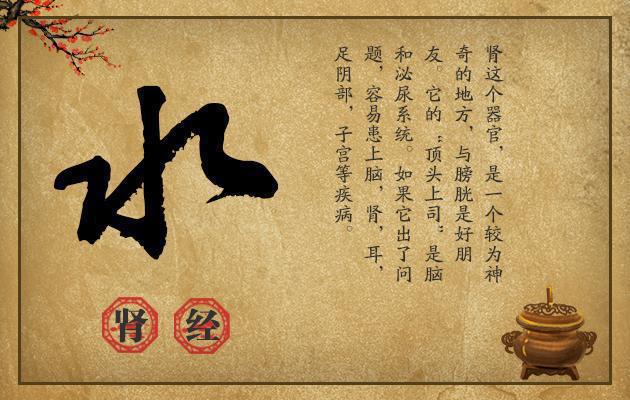 肾这个器官，是一个较为神
奇的地方，与膀胱是好朋
友。它的“顶头上司”是脑
和泌尿系统。如果它出了问
题，容易患上脑，肾，耳，
足阴部，子宫等疾病。
水
肾经